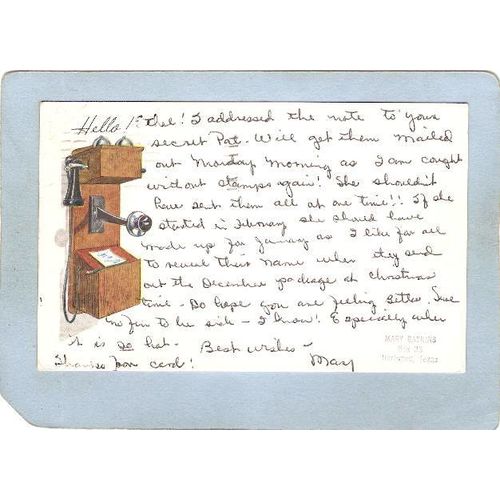 Hello! Ethel! I addressed the note to your
secret Pat. Will get them mailed
out Monday Morning as I am caught
without stamps again! She shouldn't
have sent them all at one time!! If she
started in February she should have
made up for January as I like for all
to reveal their name when they send
out the December package at Christmas
time - Do hope you are feeling better. Sure
no fun to be sick - I know! Especially when
it is so hot. Best Wishes -
Thanks for card! Mary
MARY
Texas